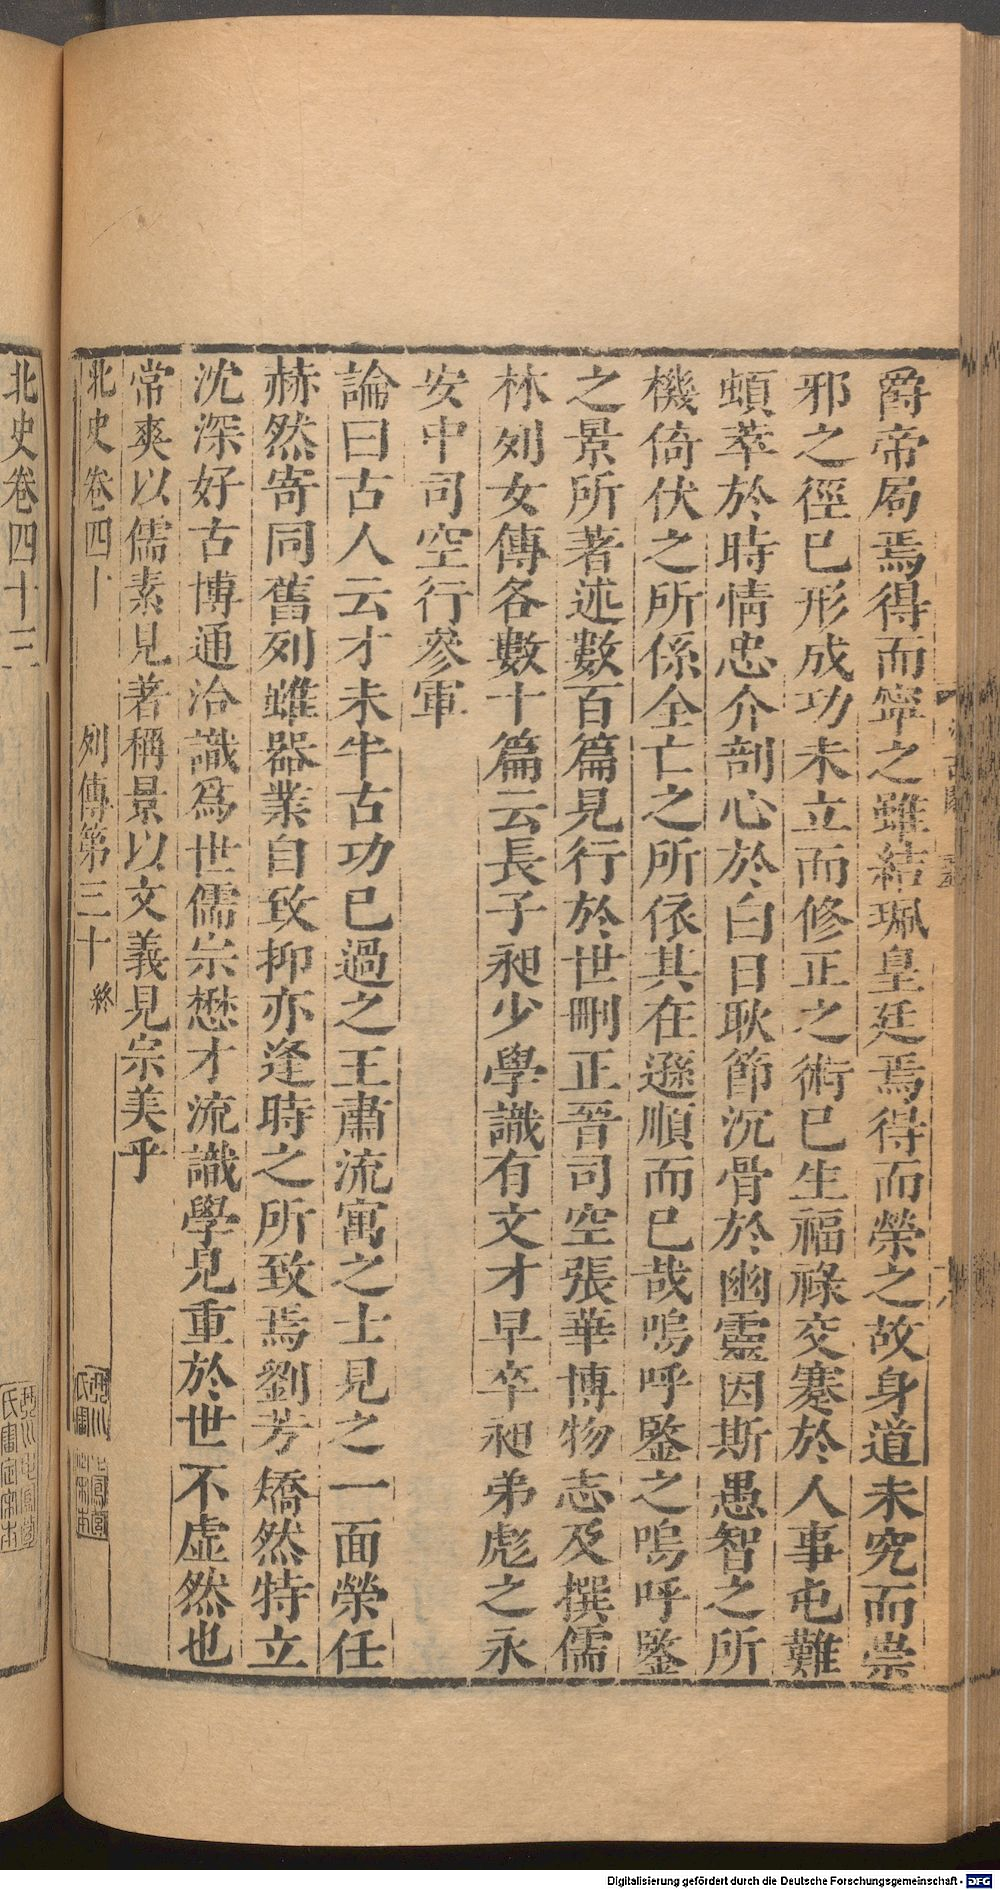 爵帝局焉得而寧之雖結珮皇廷焉得而榮之故身道未究而崇
邪之徑已形成功未立而修正之術已生福祿交蹇於人事屯難
頓萃於時情忠介剖心於白日耿節沉骨於幽靈因斯愚智之所
機倚伏之所係全亡之所依其在遜順而已哉嗚呼鑒之嗚呼鑒
之景所著述數百篇見行於世刪正晉司空張華博物志及撰儒
林列女傳各數十篇云長子昶少學識有文才早卒昶弟彪之永
安中司空行參軍
論曰古人云才未半古功已過之王肅流寓之士見之一面榮任
赫然寄同舊列雖器業自致抑亦逢時之所致焉劉芳矯然特立
沈深好古博通洽識爲世儒宗懋才流識學見重於世不虛然也
常爽以儒素見著稱景以文義見宗美乎
北史卷四十
列傳第三十 終
北史卷四十三
Digitalisierung gefördert durch die Deutsche Forschungsgemeinschaft - DFG